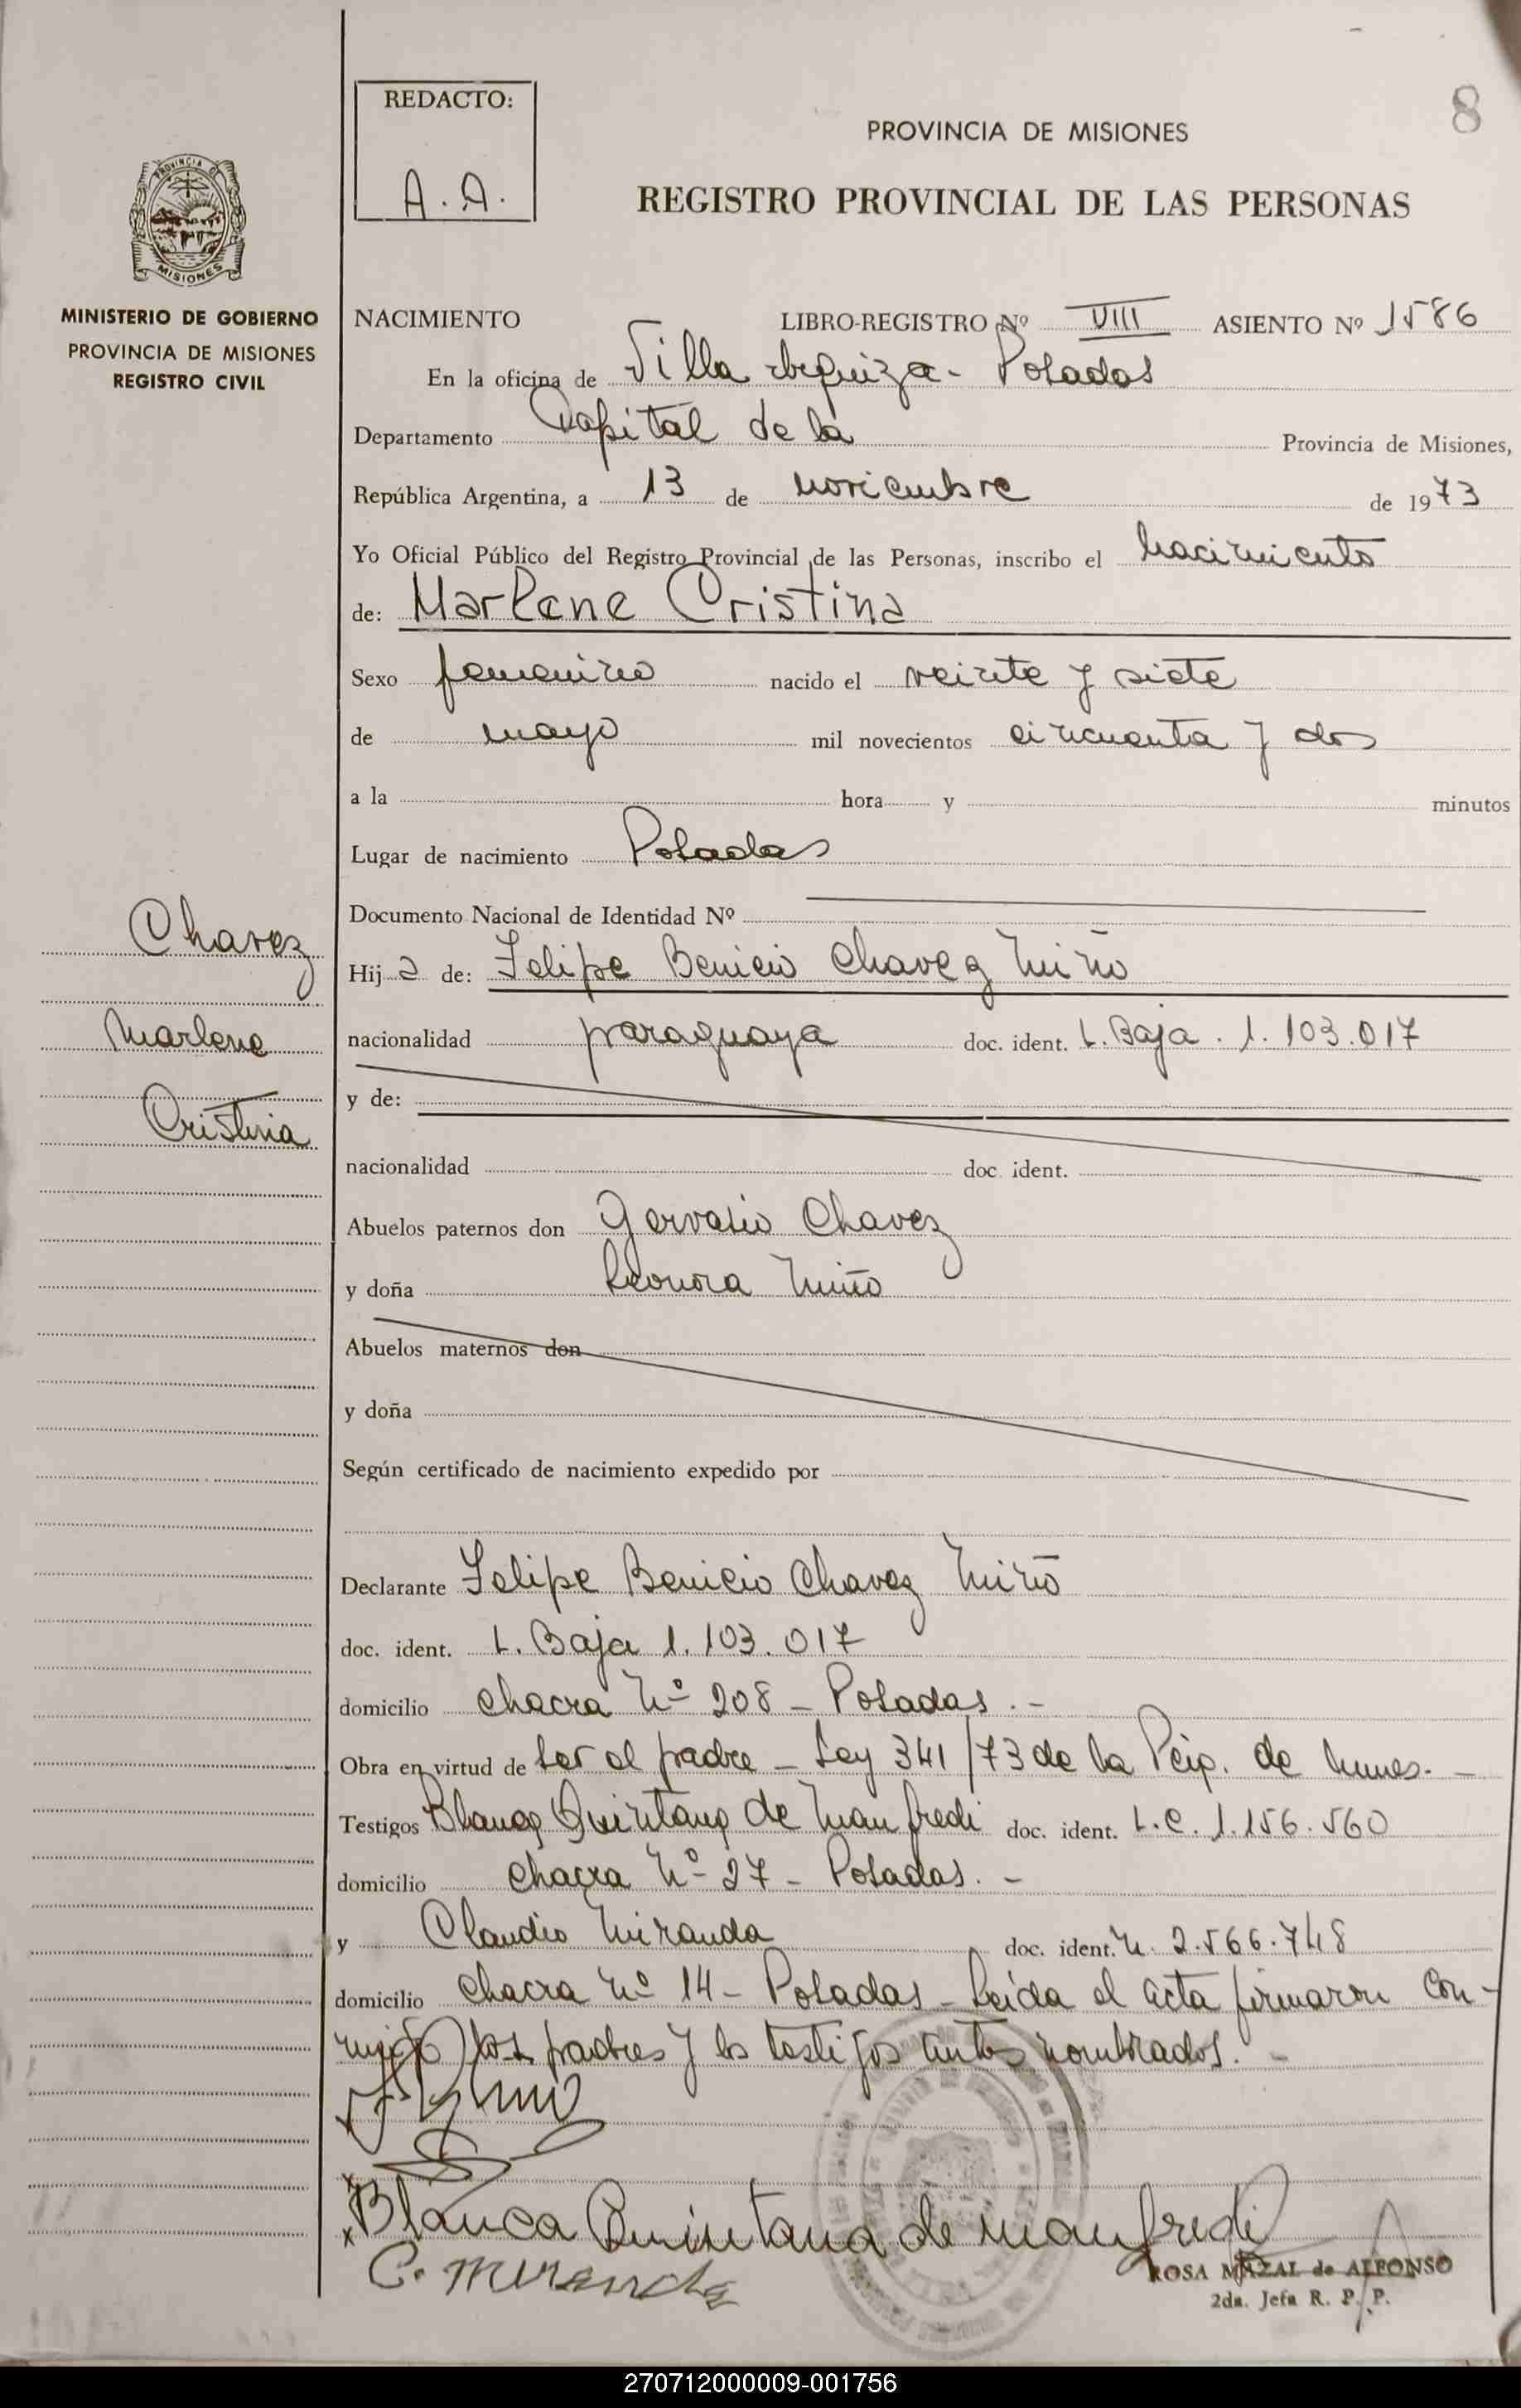 8
REDACTO:
A. A.
PROVINCIA DE MISIONES
REGISTRO PROVINCIAL DE LAS PERSONAS
PROVINCIA D
MISIONES
MINISTERIO DE GOBIERNO
PROVINCIA DE MISIONES
REGISTRO CIVIL
NACIMIENTO LIBRO-REGISTRO Nº VIII ASIENTO Nº 1586
En la oficina de Villa Urquiza - Posadas
Departamento Capital de la Provincia de Misiones,
República Argentina, a 13 de noviembre de 1973
Yo Oficial Público del Registro Provincial de las Personas, inscribo el nacimiento
de: Marlene Cristina
Sexo femenino nacido el veinte y siete
de mayo mil novecientos cincuenta y dos
a la hora y minutos
Lugar de nacimiento Posadas
Documento Nacional de Identidad Nº
Chavez
Marlene
Cristina
Hij a de: Felipe Benicio Chavez Miño
nacionalidad paraguaya doc. ident. L. Baja. 1.103.017
y de:
nacionalidad doc. ident.
Abuelos paternos don Gervasio Chavez
y doña Leonora Miño
Abuelos maternos don
y doña
Según certificado de nacimiento expedido por
Declarante Felipe Benicio Chavez Miño
doc. ident. L. Baja 1.103.017
domicilio chacra Nº 208 - Posadas. -
Obra en virtud de ser el padre - Ley 341/73 de la Pcia. de Mnes. -
Testigos Blanca Quintana de Manfredi doc. ident. L.C. 1.156.560
domicilio chacra Nº 27 - Posadas. -
y Claudio Miranda doc. ident. M. 2.566.748
domicilio chacra Nº 14 - Posadas - Leída el acta firmaron con-
migo los padres y los testigos antes nombrados. -
Blanca Quintana de Manfredi
C. Miranda
ROSA MAZAL de ALFONSO
2da. Jefa R. P. P.
270712000009-001756